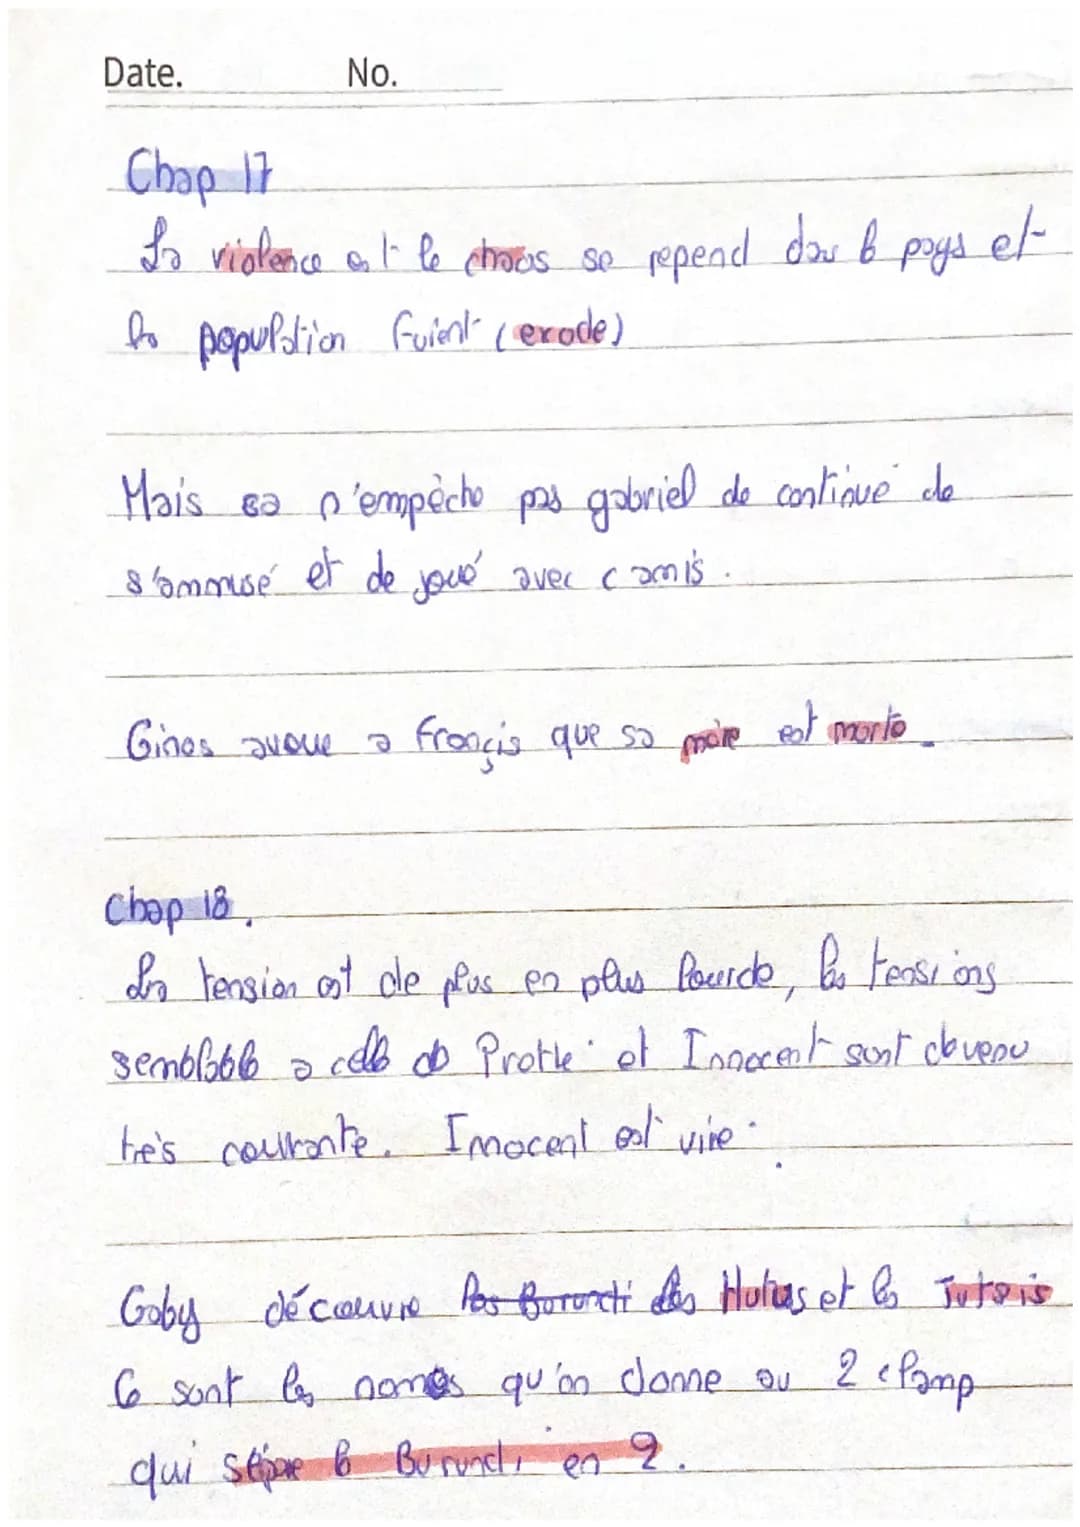 Date. No.
Chap 17
La violence et le chaos se repend dans le pays et
la population fuient (exode)
Mais sa n'empèche pas gabriel de continué de
s'ammusé et de joué avec c amis.
Ginos avoue a françis que sa mère est morte.
Chap 18.
La tension est de plus en plus lourde, les tensions
semblable a celle de Protté et Innocent sont devenu
très courrante. Innocent est viré.
Gaby découvre les Burundi les Hutus et les Tutsis
Ce sont les nomes qu'on donne au 2 clamp
qui sépare le Burundi en 2.